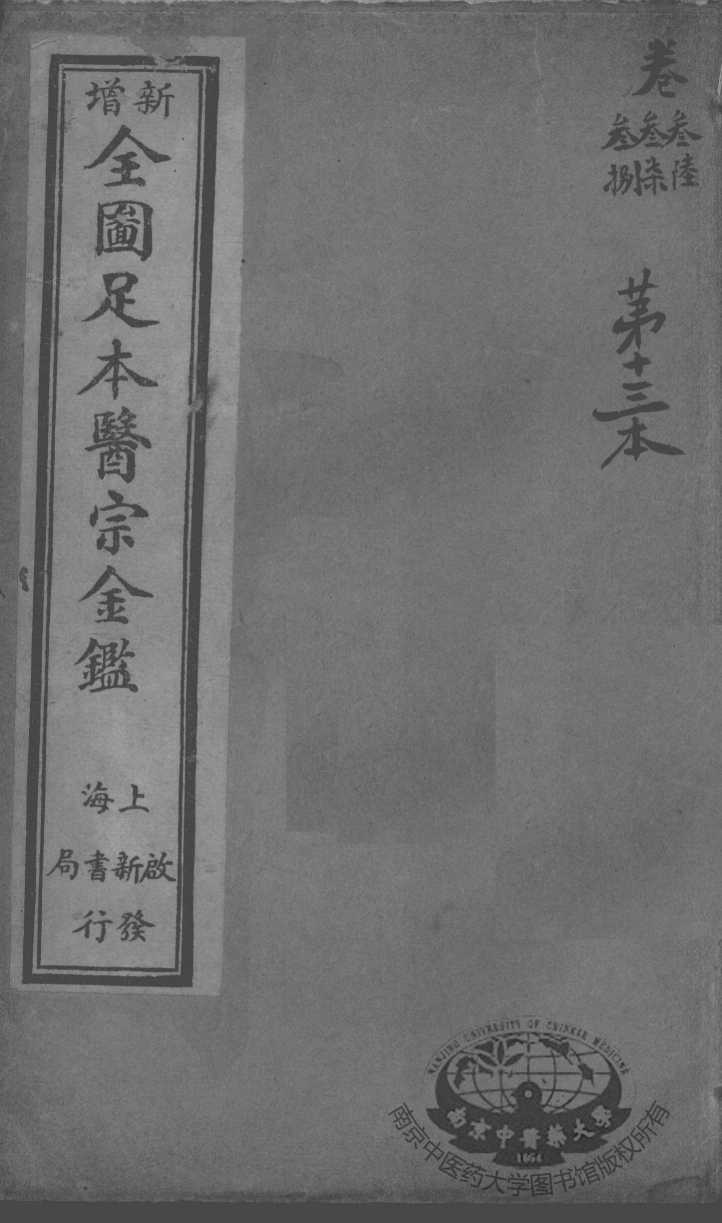 卷
叁陸
叁柒
叁捌
苐十三本
新增
全圖足本醫宗金鑑
上海
啟新書局
發行
NANJING UNIVERSITY OF CHINESE MEDICINE
南京中醫藥大學
1954
南京中医药大学图书馆版权所有